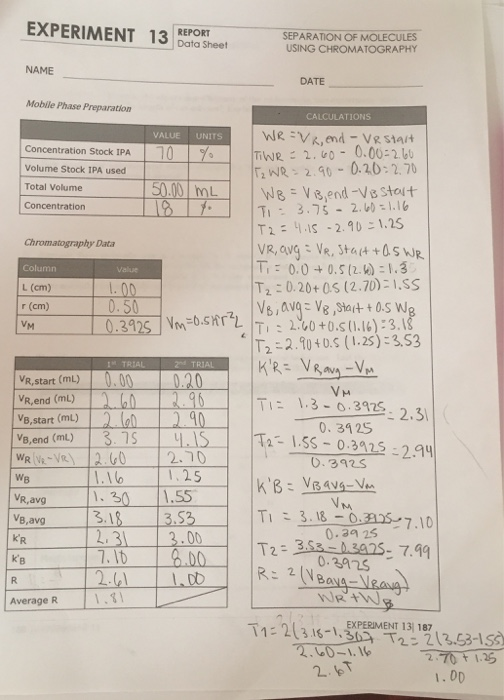 EXPERIMENT 13 REPORT Data Sheet
SEPARATION OF MOLECULES
USING CHROMATOGRAPHY
NAME
DATE
Mobile Phase Preparation
VALUE UNITS
Concentration Stock IPA 70 %
Volume Stock IPA used
Total Volume 50.00 mL
Concentration 18 %
Chromatography Data
Column Value
L (cm) 1.00
r (cm) 0.50
VM 0.3925 Vm=0.5πr²L
1st TRIAL 2nd TRIAL
VR,start (mL) 0.00 0.20
VR,end (mL) 2.60 2.90
VB,start (mL) 2.60 2.90
VB,end (mL) 3.75 4.15
WR (VE-VR) 2.60 2.70
WB 1.16 1.25
VR,avg 1.30 1.55
VB,avg 3.18 3.53
K'R 2.31 3.00
K'B 7.10 8.00
R 2.61 1.00
Average R 1.81
CALCULATIONS
WR = VR,end - VR start
T1WR = 2.60 - 0.00 = 2.60
T2 WR = 2.90 - 0.20 = 2.70
WB = VB,end - VB start
T1 = 3.75 - 2.60 = 1.16
T2 = 4.15 - 2.90 = 1.25
VR,avg = VR, start + 0.5 WR
T1 = 0.0 + 0.5 (2.6) = 1.3
T2 = 0.20 + 0.5 (2.70) = 1.55
VB,avg = VB, start + 0.5 WB
T1 = 2.60 + 0.5 (1.16) = 3.18
T2 = 2.90 + 0.5 (1.25) = 3.53
K'R = VRavg - VM
VM
T1 = 1.3 - 0.3925 = 2.31
0.3925
T2 = 1.55 - 0.3925 = 2.94
0.3925
K'B = VBavg - Vm
VM
T1 = 3.18 - 0.3925 = 7.10
0.3925
T2 = 3.53 - 0.3925 = 7.99
0.3925
R = 2 (VBavg - VRavg)
WR + WB
EXPERIMENT 13| 187
T1 = 2(3.18-1.30) T2 = 2(3.53-1.55)
2.60-1.16 2.70 + 1.25
2.61 1.00